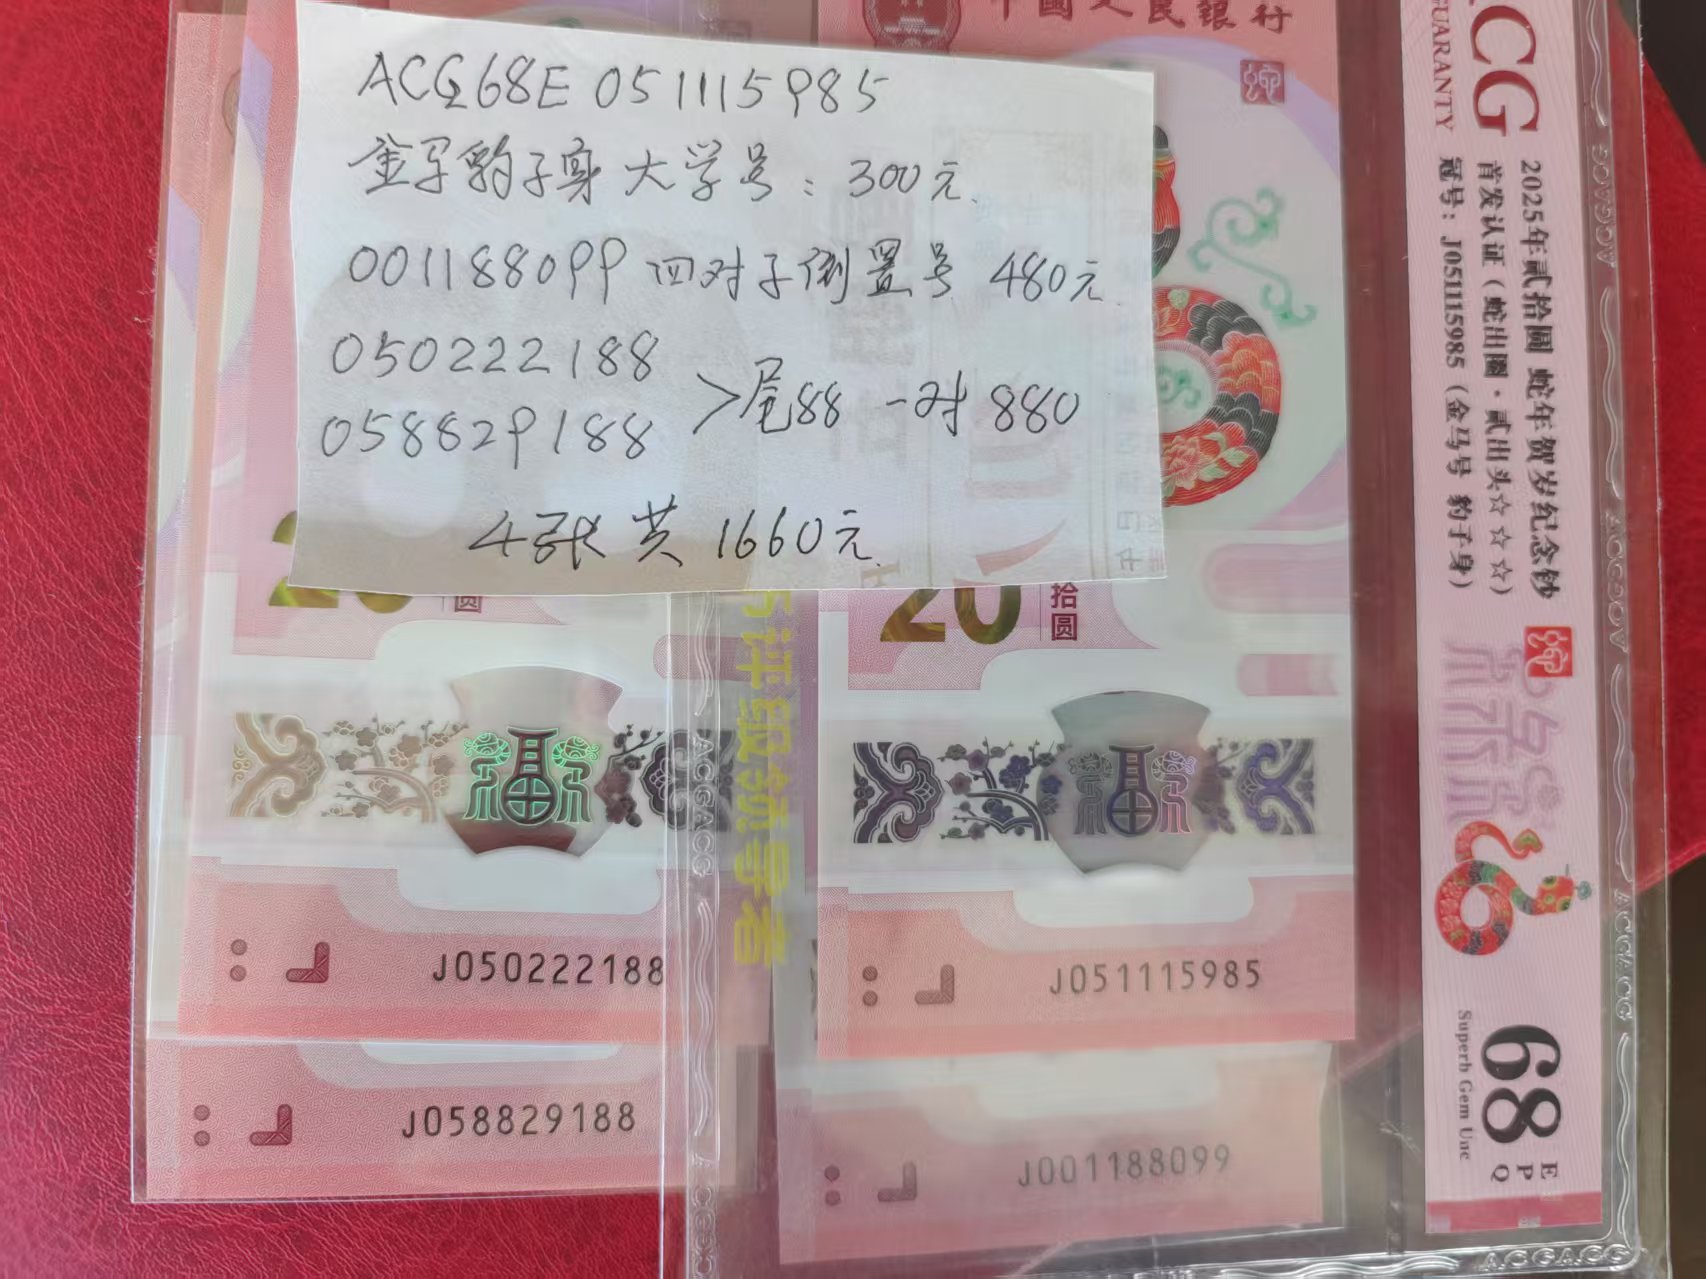 ACG68E 051115985
金马豹子身大学号：300元.
001188099 四对子倒置号 480元.
050222188
058829188
>尾88 一对 880
4张共 1660元.
中国人民银行
20
拾圆
圆
评级领导者
J050222188
J058829188
J051115985
J001188099
ACG
GUARANTY
2025年贰拾圆 蛇年贺岁纪念钞
首发认证（蛇出圈·贰出头☆☆☆☆）
冠号：J051115985（金马号 豹子身）
68
E
P
Q
Superb Gem Unc
ACGACG